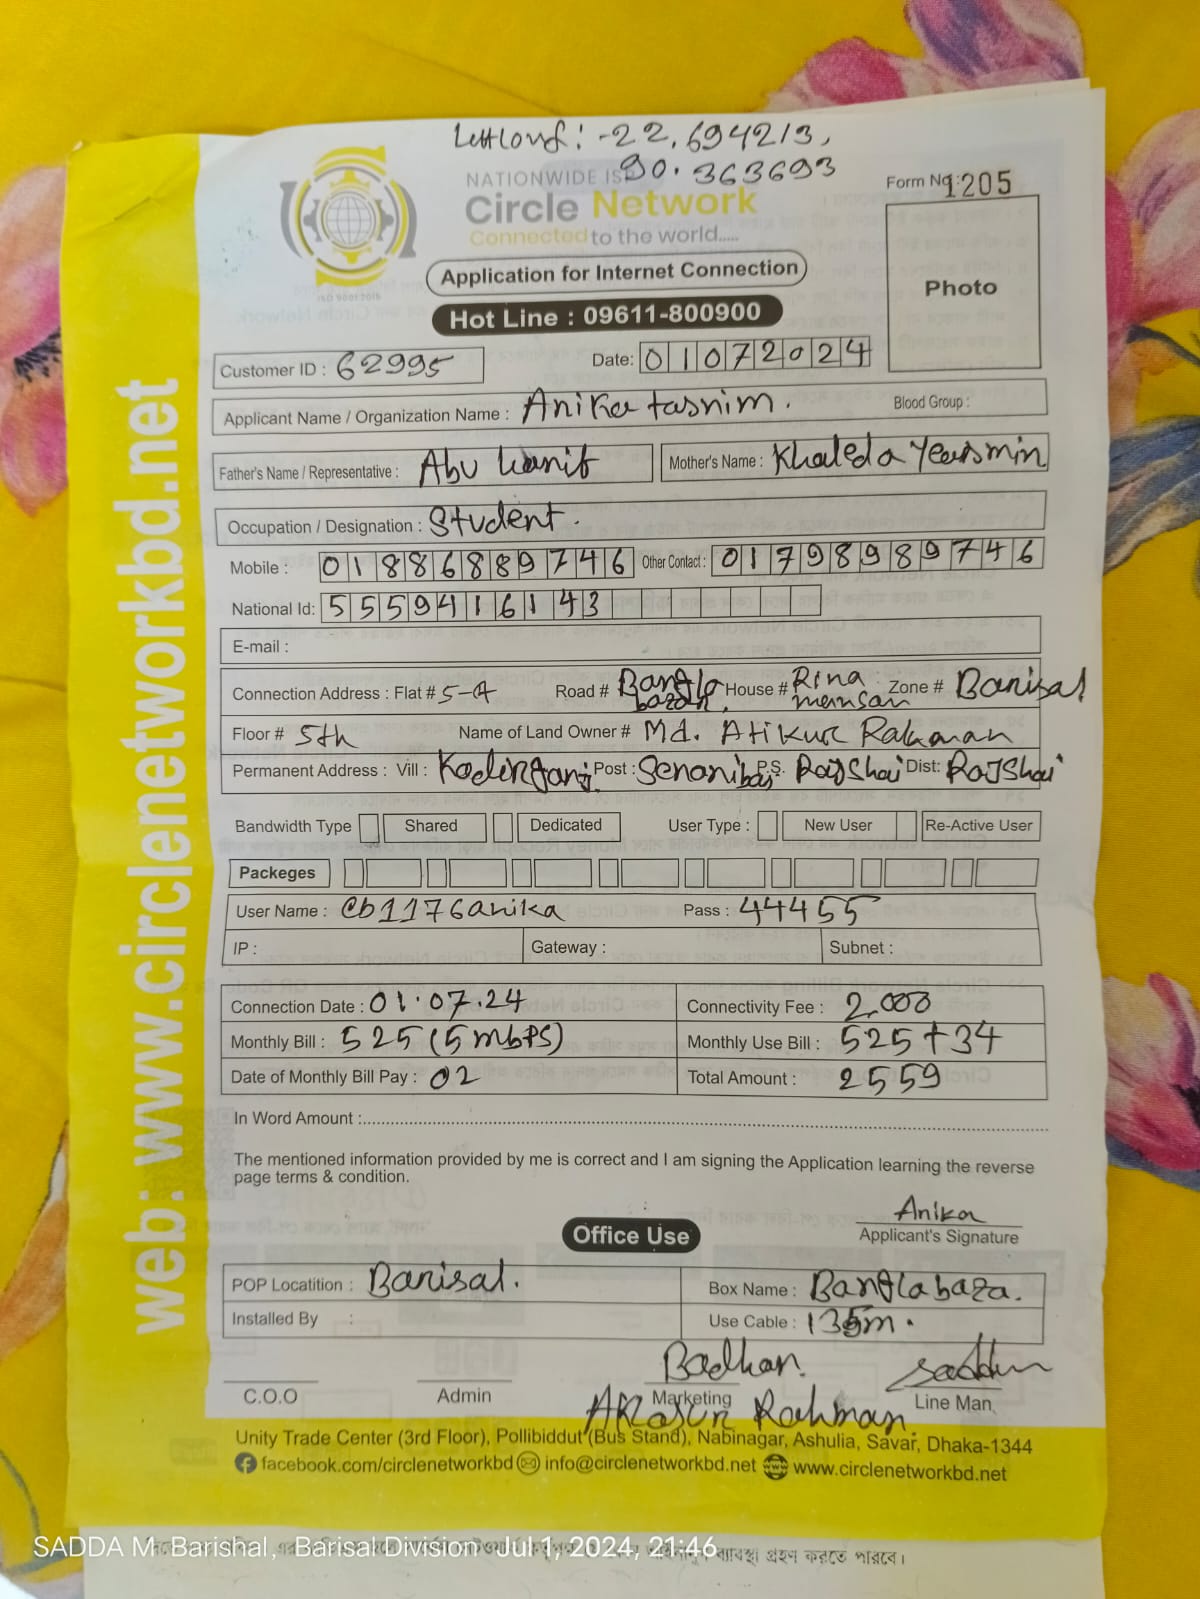 Lettlond: -22.694213,
90.363693
NATIONWIDE ISP
Form No: 1205
Circle Network
Connected to the world.....
ISO 9001:2015
Application for Internet Connection
Photo
Hot Line : 09611-800900
Customer ID : 62995 Date: 01072024
Applicant Name / Organization Name : Anika tasnim. Blood Group :
Father's Name / Representative : Abu hanif Mother's Name : Khaleda Yeasmin
Occupation / Designation : Student.
Mobile : 01886889746 Other Contact : 01798989746
National Id: 5559416143
E-mail :
Connection Address : Flat # 5-A Road # Bangla bazar. House # Rina mansan Zone # Barisal
Floor # 5th Name of Land Owner # Md. Atikur Rahaman
Permanent Address : Vill : Kadirganj Post : Senanibas P.S. RajShai Dist: RaJShai
Bandwidth Type Shared Dedicated User Type : New User Re-Active User
Packeges
User Name : cb1176anika Pass : 44455
IP : Gateway : Subnet :
Connection Date : 01.07.24 Connectivity Fee : 2,000
Monthly Bill : 525 (5 mbPS) Monthly Use Bill : 525 + 34
Date of Monthly Bill Pay : 02 Total Amount : 2559
In Word Amount :
The mentioned information provided by me is correct and I am signing the Application learning the reverse
page terms & condition.
Anika
Applicant's Signature
Office Use
POP Locatition : Barisal. Box Name : Banglabaza.
Installed By : Use Cable : 135m.
Badhan. Saddam
C.O.O Admin Marketing Line Man
Rahman.
Unity Trade Center (3rd Floor), Pollibiddut (Bus Stand), Nabinagar, Ashulia, Savar, Dhaka-1344
facebook.com/circlenetworkbd info@circlenetworkbd.net www.circlenetworkbd.net
web: www.circlenetworkbd.net
SADDA M Barishal, Barisal Division Jul 1, 2024, 21:46
ব্যবস্থা গ্রহণ করতে পারবে।